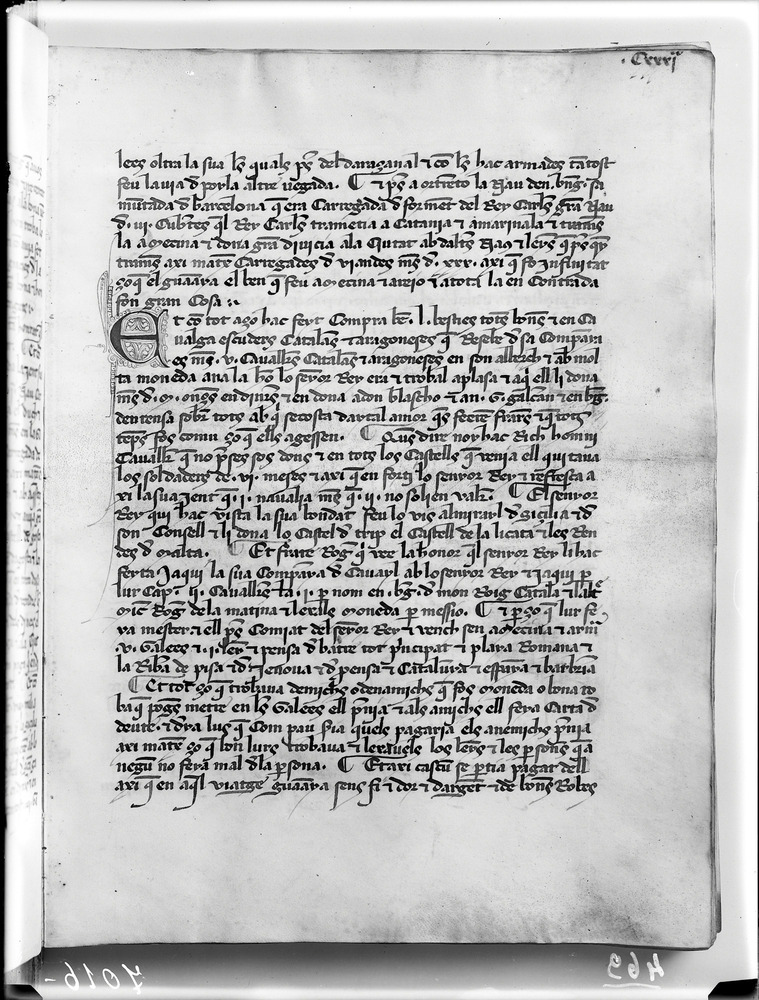 . Cxxxj
lees oltra la sua les quals pres del daraçanal ⁊ cō les hac armades tātost
feu la via d porla altre vegada. ¶ ⁊ pres a ortreto la Nau den .bng. sa
mutada d barcelona q era Carregada d forment del Rey Carles grā Nau
d .iii. Cubtes q̄l Rey Carles trametia a Catania ⁊
la a mecina ⁊ dona grā divicia ala Ciutat ab daltes Naus ⁊ lenys
trames axi matex Carregades d viandes mes d .xxx. axi q̄ fo Infinitat
ço q̄ el guaāya el ben q̄ feu a mecina ⁊ a rejo ⁊ a tota la en Contrada
fon gran Cosa
Et cō tot aço hac feyt Compra be .l. besties totes bones ⁊ en Ca
valga escuders Catalās ⁊ aragoneses q̄ Resebe d sa Compāya
es mes .v. Cavallers Catalās ⁊ aragoneses en son alberch ⁊ ab mol
ta moneda ana la hō lo senyor Rey era ⁊ trobal a plasa ⁊ aqi ell li dona
mes d .m. onçes en diners ⁊ en dona a don blascho ⁊ a n. G. galcan ⁊ en .bg.
dentensa sobre tots ab qi se costa dartal amor q̄s feeren frares ⁊ q̄ tots
tēps fos comu ço q̄ ells agessen. ¶ Queus dire noy hac Rich hom ni
Cavaller q̄ no preses sos dons ⁊ en tots los Castells q̄ venia ell quitava
los soldaders de .vi. meses ⁊ axi q̄ en forti lo senyor Rey ⁊ refresca a
xi la sua jent q̄ .i. navalia mes q̄ .ii. no solien valer. ¶ El senyor
Rey qui hac vista la sua bondat feu lo vis almirayl d sicilia ⁊ d
son Consell ⁊ li dona lo Castel d trip el Castell de la licata ⁊ les Ren
des d malta. ¶ Et frare Rog q̄ vee la honor q̄l senyor Rey li hac
feyta Jaqui la sua Compāya d Cavayl ab lo senyor Rey ⁊ jaqui p
lur Cap .ii. Cavallers la .i. p nom en .bg. d mon Roig Catala ⁊ laltre
Mic Rog de la matina ⁊ lexals moneda p messio. ¶ ⁊ p ço q̄ lur fe
va mester ⁊ ell pres Comiat del senyor Rey ⁊ vench sen a mecina ⁊ arma
.v. Galees ⁊ .i. leny ⁊ pensa d batre tot principat ⁊ plaia Romana ⁊
la Riba de pisa ⁊ d jenova ⁊ d pensa ⁊ Catalunya ⁊ espaya ⁊ barbria
¶ Et tot ço q̄ trobava denmichs o denamichs q̄ fos moneda o bona ro
ba q̄ poges metre en les Galees ell prnia ⁊ als amichs ell feya Carta d
deute ⁊ dya lus q̄ Com pau sia quels pagaria els anemichs prnia
axi matex ço q̄ bon lurs trobava ⁊ lexavels los lenys ⁊ les psones q̄ a
negū no feya mal d la psona. ¶ Et axi cascū se ptia pagat dell
axi q̄ en aql viatge guaāya sens fi ⁊ dor ⁊ dargēt ⁊ de bones Robes
7016-
463